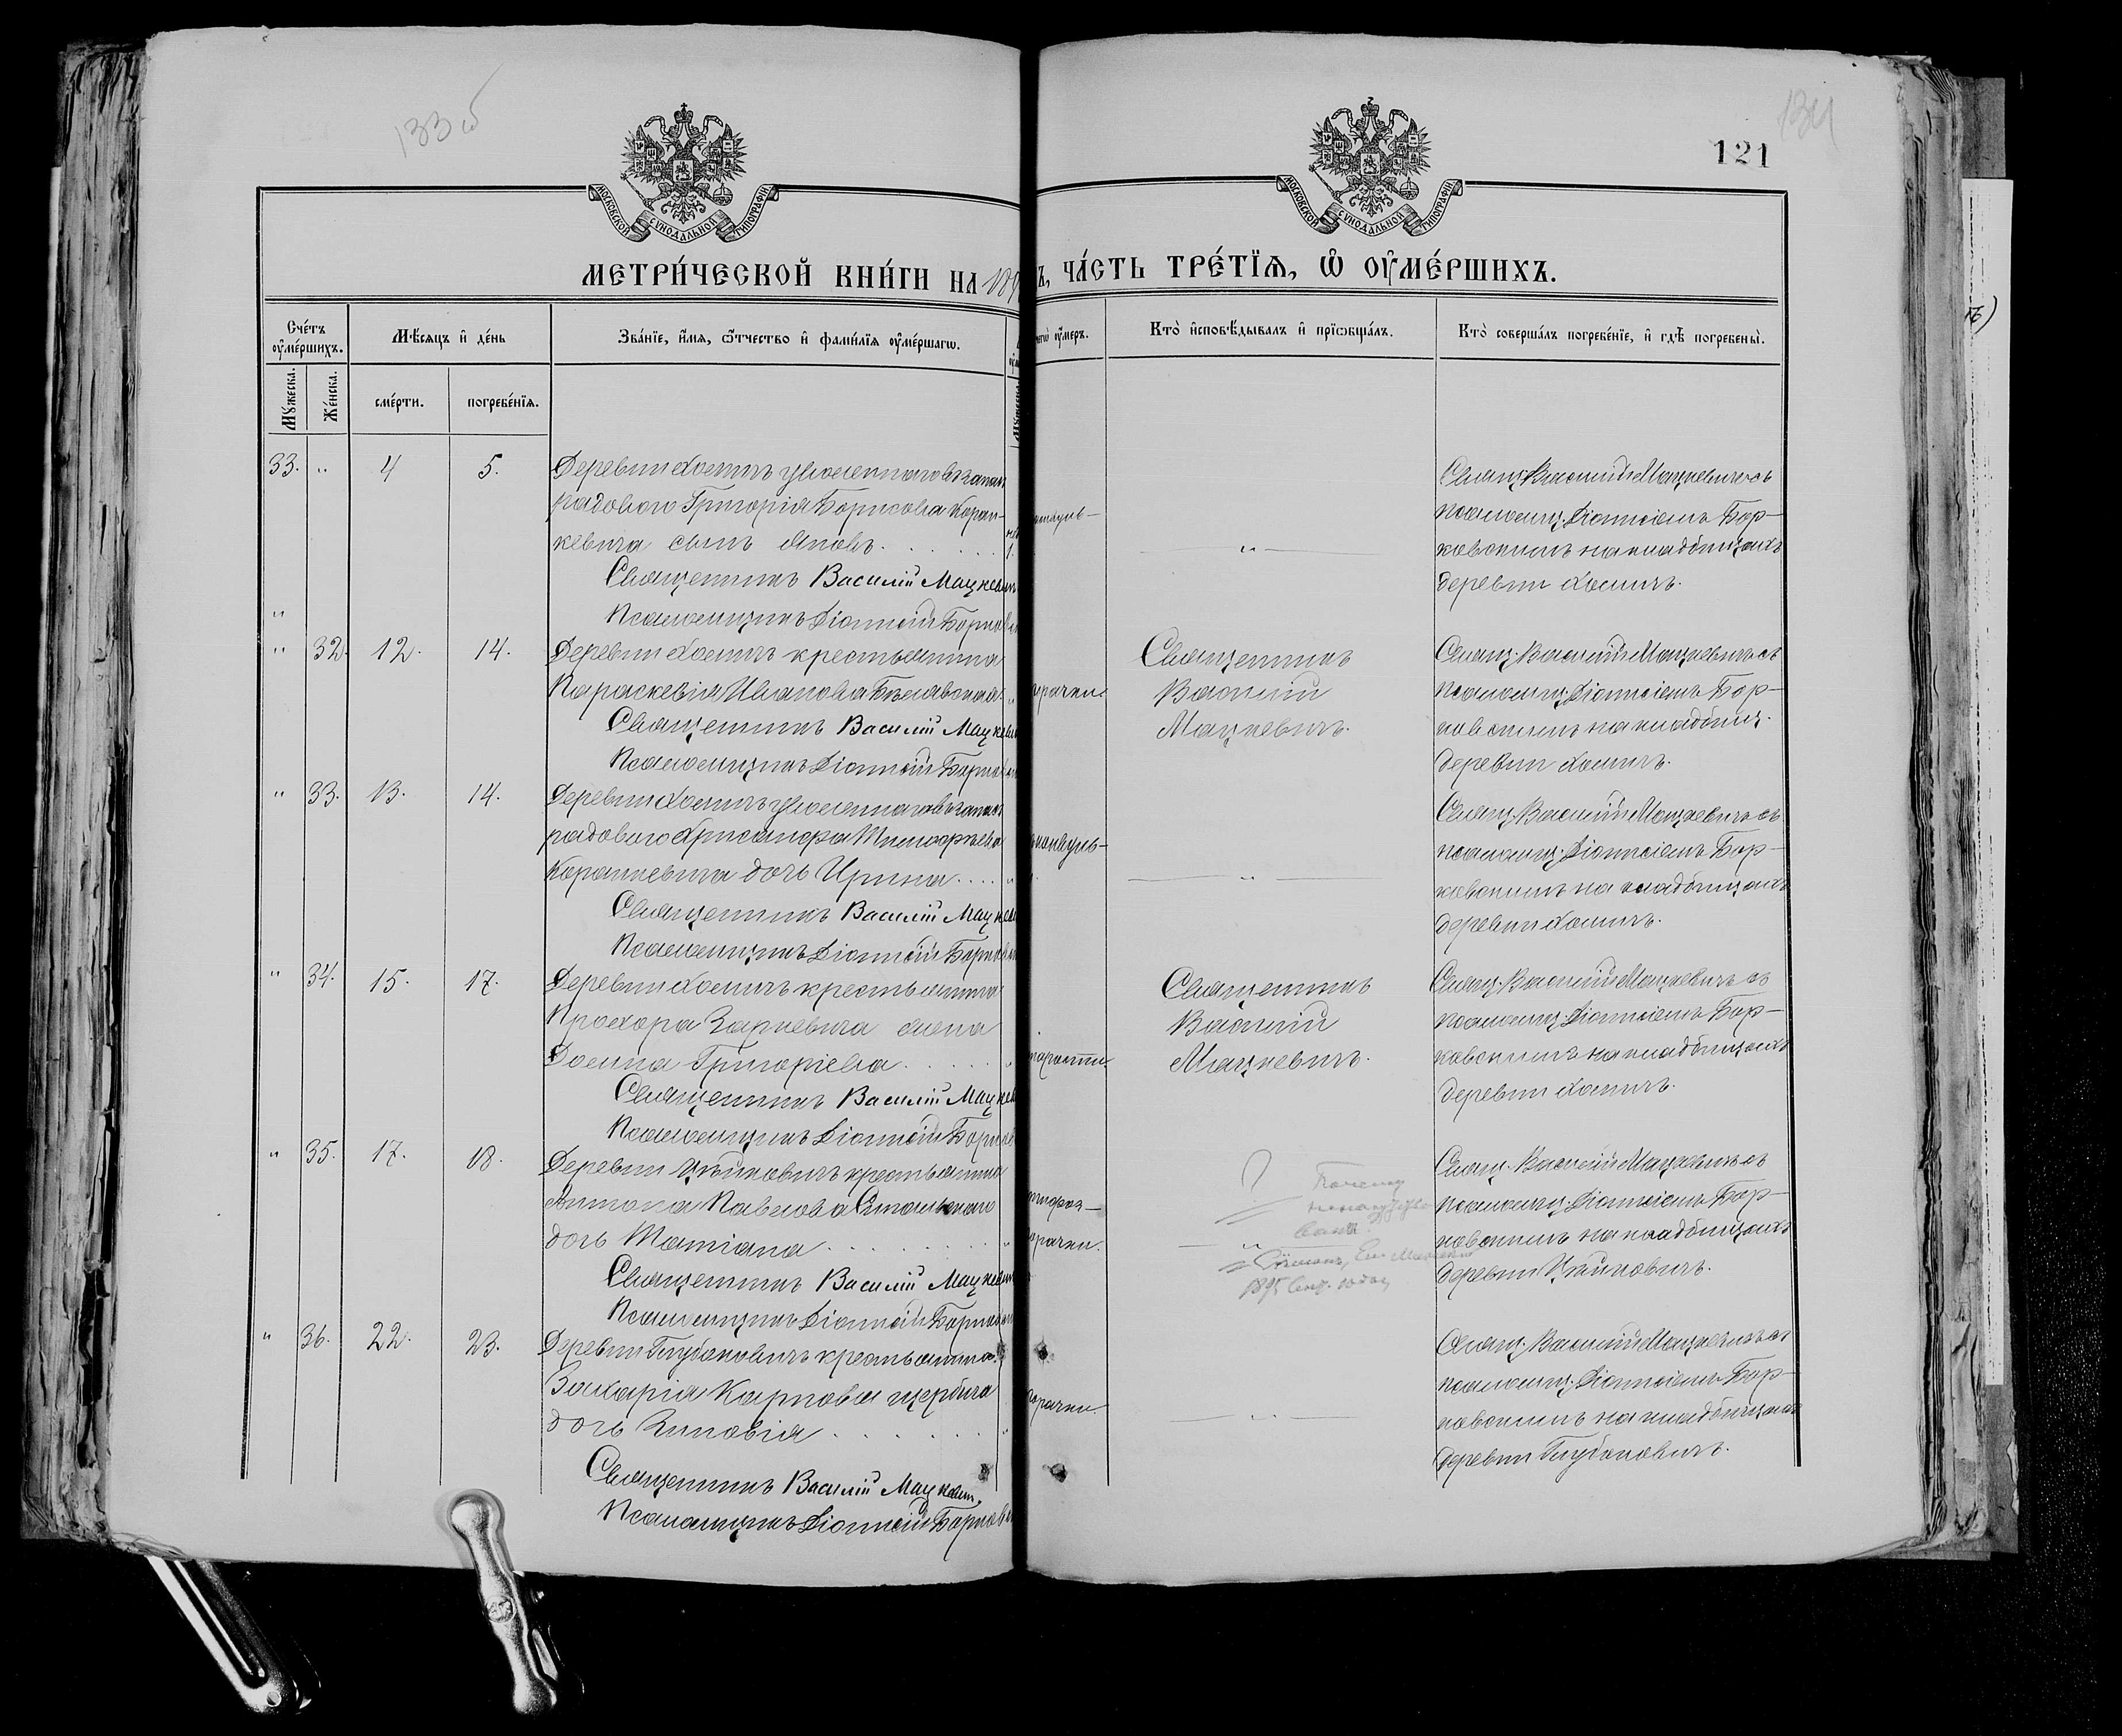 133 об
134
121
МОСКОВСКОЙ СѴНОДАЛЬНОЙ ТИПОГРАФІИ
МОСКОВСКОЙ СѴНОДАЛЬНОЙ ТИПОГРАФІИ
МЕТРИ́ЧЕСКОЙ КНИ́ГИ НА 189
Ъ, ЧА́СТЬ ТРЕ́ТЇѦ, Ѽ ОУ҆МЕ́РШИХЪ.
Сче́тъ оу҆ме́ршихъ.
Мꙋ́жеска.
Же́нска.
Мѣ́сяцъ и҆ де́нь
сме́рти.
погребе́нїѧ.
Зва́нїе, и҆́мѧ, ѻ҆́тчество и҆ фами́лїѧ оу҆ме́ршагѡ.
чегѡ̀ оу҆́меръ.
Кто̀ и҆сповѣ́дывалъ и҆ прїѡбща́лъ.
Кто̀ соверша́лъ погребе́нїе, и҆ гдѣ̀ погребены̀.
33. „ 4 5. Деревни Хотиничъ уволеннаго въ запасъ
рядового Григорія Борисова Кораш-
кевича сынъ Яковъ.
Священникъ Василій Мацкевичъ
Псаломщикъ Діонисій Борков
Свящ. Василій Мацкевичъ съ
псаломщ. Діонисіемъ Бор-
ковскимъ на кладбищахъ
деревни
„ 32. 12. 14. Деревни крестьянина
Параскевія Иванова Бѣлявская
Священникъ Василій Мацкевич
Псаломщикъ Діонисій Борков
горячки
Священникъ
Василій
Мацкевичъ.
Свящ. Василій Мацкевичъ съ
псаломщ. Діонисіемъ Бор-
ковскимъ на кладбищ.
деревни
„ 33. 13. 14. Деревни уволеннаго въ запасъ
рядового Хрисанфа Тимофѣева
Корашкевича дочь Ирина
Священникъ Василій Мацкев
Псаломщикъ Діонисій Борков
Свящ. Василій Мацкевичъ съ
псаломщ. Діонисіемъ Бор-
ковскимъ на кладбищахъ
деревни
„ 34. 15. 17. Деревни крестьянина
Прохора Зарневича жена
Домна Григоріева
Священникъ Василій Мацкев
Псаломщикъ Діонисій Борков
старости
Священникъ
Василій
Мацкевичъ.
Свящ. Василій Мацкевичъ съ
псаломщ. Діонисіемъ Бор-
ковскимъ на кладбищахъ
деревни
„ 35. 17. 18. Деревни Цѣйковичъ крестьянина
Антона Павлова
дочь Татіана
Священникъ Василій Мацкевич
Псаломщикъ Діонисій Борков
горячки.
Почему
1895
Свящ. Василій Мацкевичъ съ
псаломщ. Діонисіемъ Бор-
ковскимъ на кладбищахъ
деревни Цѣйковичъ.
„ 36. 22. 23. Деревни Глубоковичъ крестьянина
Захарія Карпова Щербича
дочь Зиновія
Священникъ Василій Мацкевич.
Псаломщикъ Діонисій Борков
горячки.
Свящ. Василій Мацкевичъ съ
псаломщ. Діонисіемъ Бор-
ковскимъ на кладбищахъ
деревни Глубоковичъ.